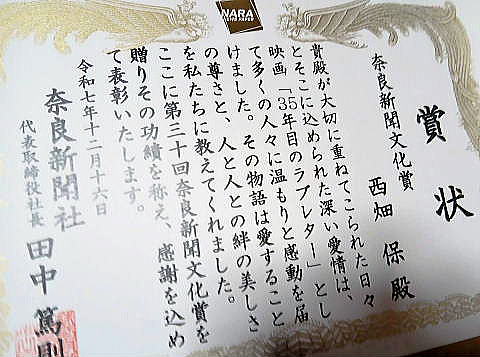 NARA
賞状
奈良新聞文化賞
西畑 保殿
貴殿が大切に重ねてこられた日々
とそこに込められた深い愛情は、
映画「35年目のラブレター」とし
て多くの人々に温もりと感動を届
けました。その物語は愛すること
の尊さと、人と人との絆の美しさ
を私たちに教えてくれました。
ここに第三十回奈良新聞文化賞を
贈りその功績を称え、感謝を込め
て表彰いたします。
令和七年十二月十六日
奈良新聞社
代表取締役社長 田中篤則